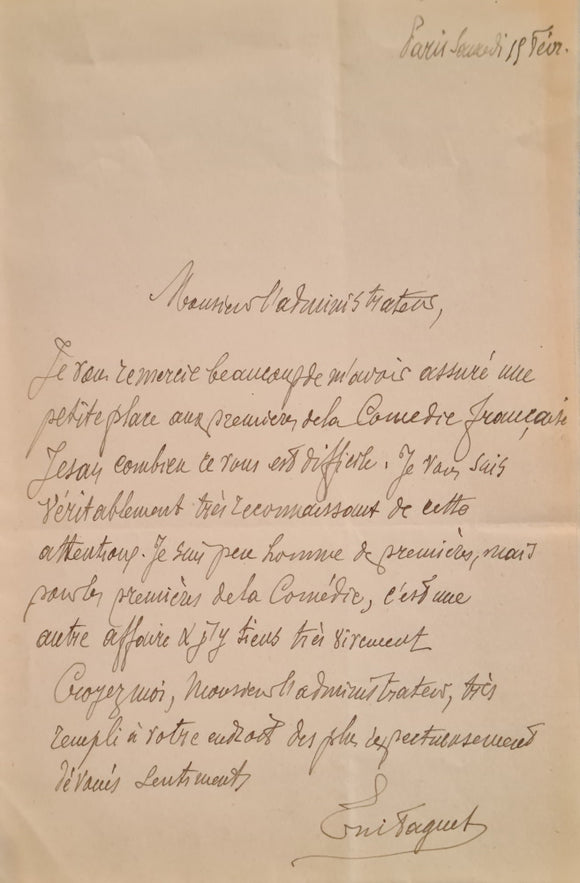 Paris Samedi 15 Févr.
Monsieur l'administrateur,
Je vous remercie beaucoup de m'avoir assuré une
petite place aux premières de la Comedie française
Je sais combien ce vous est difficile. Je vous suis
véritablement très reconnaissant de cette
attention. Je suis peu homme de premières, mais
pour les premières de la Comédie, c'est une
autre affaire & j'y tiens très vivement
Croyez moi, Monsieur l'administrateur, très
rempli à votre endroit des plus respectueusement
dévoués sentiments
Em Faguet